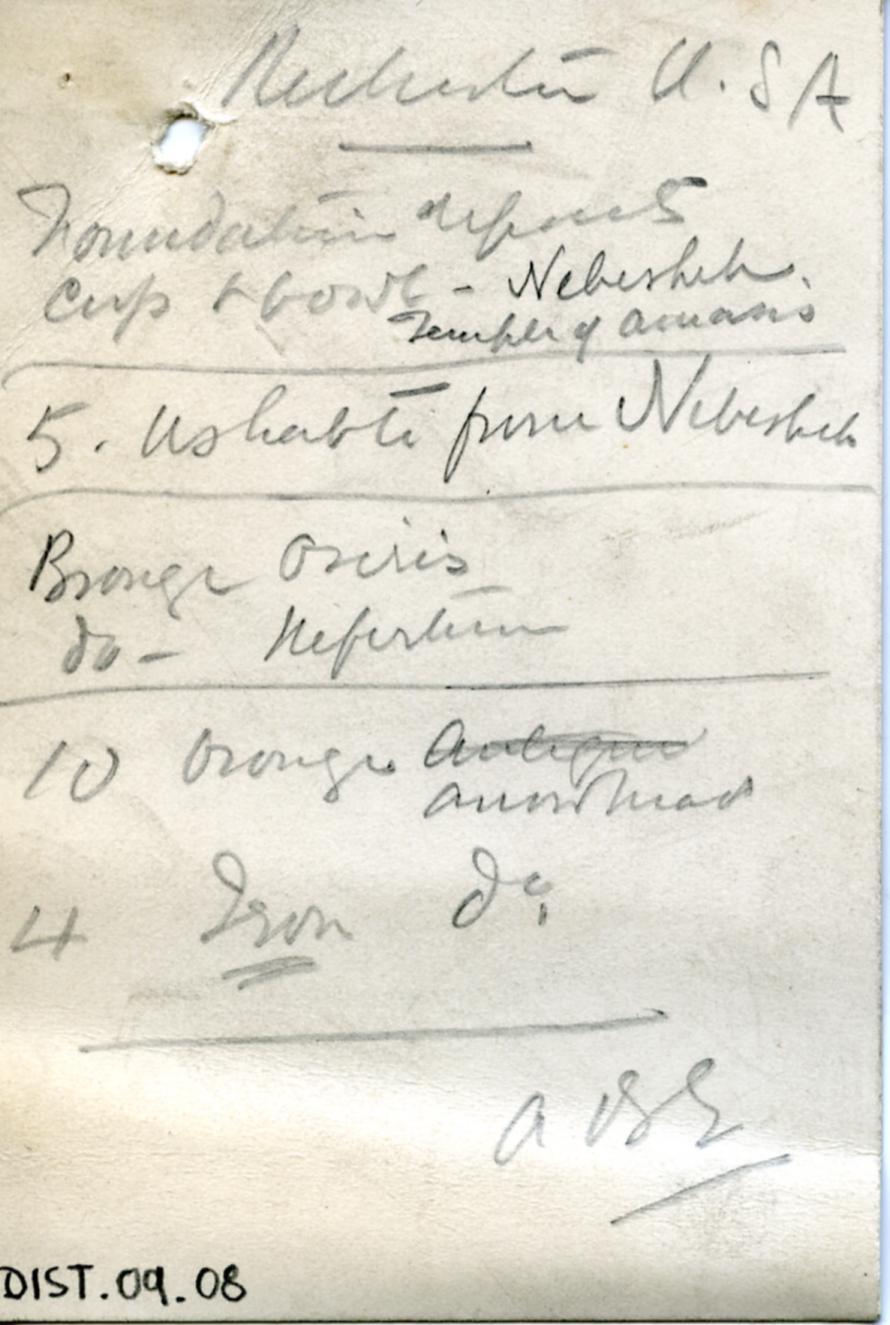 Rochester U.S A
Foundation deposits
Cup & bowl - Nebesheh.
Temple of Amasis
5. Ushabti from Nebesheh
Bronze Osiris
do - Nefertum
10 bronze Antique
arrowhead
4 Iron do.
DIST.09.08